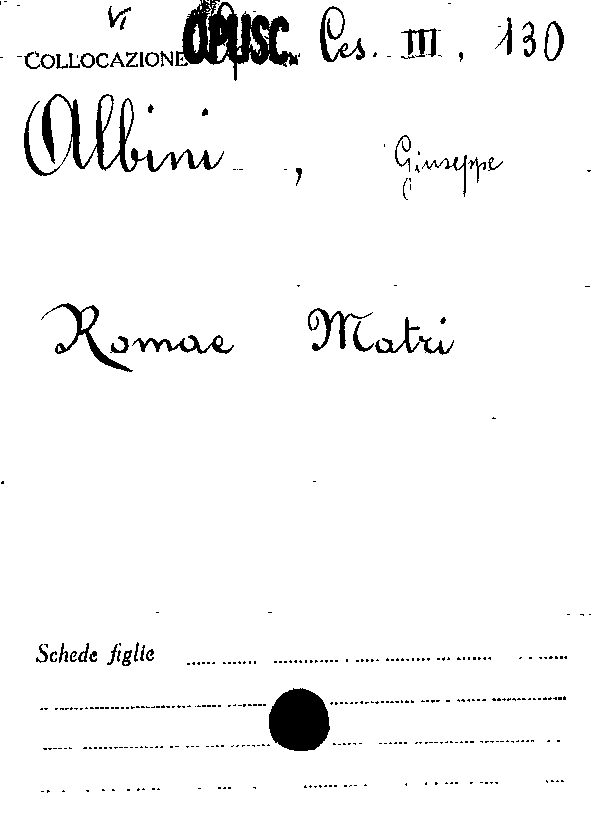 VI
COLLOCAZIONE OPUSC. Ces. III, 130
Albini, Giuseppe
Romae Matri
Schede figlie